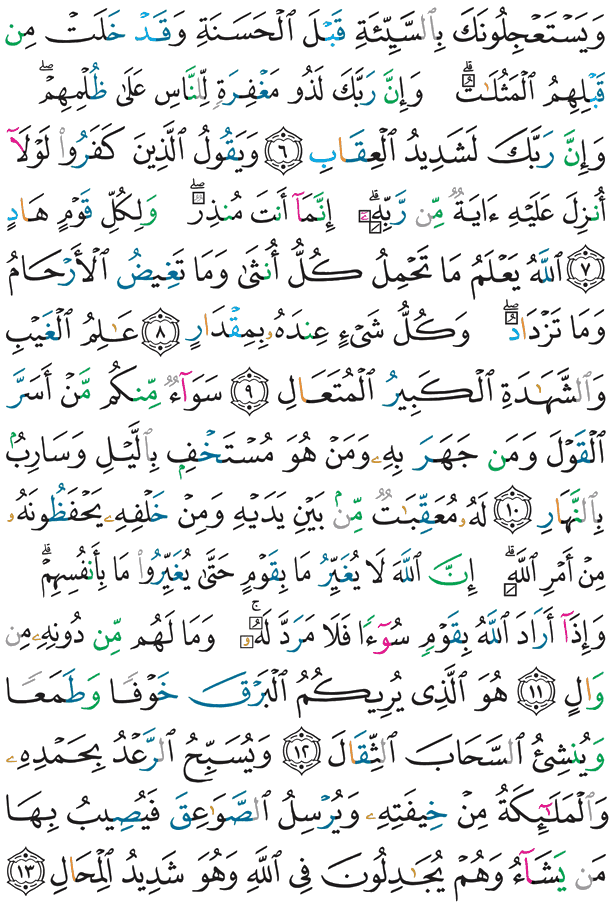 وَيَسۡتَعۡجِلُونَكَ بِٱلسَّيِّئَةِ قَبۡلَ ٱلۡحَسَنَةِ وَقَدۡ خَلَتۡ مِن
قَبۡلِهِمُ ٱلۡمَثُلَٰتُۗ وَإِنَّ رَبَّكَ لَذُو مَغۡفِرَةٖ لِّلنَّاسِ عَلَىٰ ظُلۡمِهِمۡۖ
وَإِنَّ رَبَّكَ لَشَدِيدُ ٱلۡعِقَابِ ٦ وَيَقُولُ ٱلَّذِينَ كَفَرُواْ لَوۡلَآ
أُنزِلَ عَلَيۡهِ ءَايَةٞ مِّن رَّبِّهِۦٓۗ إِنَّمَآ أَنتَ مُنذِرٞۖ وَلِكُلِّ قَوۡمٍ هَادٍ
٧ ٱللَّهُ يَعۡلَمُ مَا تَحۡمِلُ كُلُّ أُنثَىٰ وَمَا تَغِيضُ ٱلۡأَرۡحَامُ
وَمَا تَزۡدَادُۖ وَكُلُّ شَيۡءٍ عِندَهُۥ بِمِقۡدَارٍ ٨ عَٰلِمُ ٱلۡغَيۡبِ
وَٱلشَّهَٰدَةِ ٱلۡكَبِيرُ ٱلۡمُتَعَالِ ٩ سَوَآءٞ مِّنكُم مَّنۡ أَسَرَّ
ٱلۡقَوۡلَ وَمَن جَهَرَ بِهِۦ وَمَنۡ هُوَ مُسۡتَخۡفِۭ بِٱلَّيۡلِ وَسَارِبُۢ
بِٱلنَّهَارِ ١٠ لَهُۥ مُعَقِّبَٰتٞ مِّنۢ بَيۡنِ يَدَيۡهِ وَمِنۡ خَلۡفِهِۦ يَحۡفَظُونَهُۥ
مِنۡ أَمۡرِ ٱللَّهِۗ إِنَّ ٱللَّهَ لَا يُغَيِّرُ مَا بِقَوۡمٍ حَتَّىٰ يُغَيِّرُواْ مَا بِأَنفُسِهِمۡۗ
وَإِذَآ أَرَادَ ٱللَّهُ بِقَوۡمٖ سُوٓءٗا فَلَا مَرَدَّ لَهُۥۚ وَمَا لَهُم مِّن دُونِهِۦ مِن
وَالٍ ١١ هُوَ ٱلَّذِي يُرِيكُمُ ٱلۡبَرۡقَ خَوۡفٗا وَطَمَعٗا
وَيُنشِئُ ٱلسَّحَابَ ٱلثِّقَالَ ١٢ وَيُسَبِّحُ ٱلرَّعۡدُ بِحَمۡدِهِۦ
وَٱلۡمَلَٰٓئِكَةُ مِنۡ خِيفَتِهِۦ وَيُرۡسِلُ ٱلصَّوَٰعِقَ فَيُصِيبُ بِهَا
مَن يَشَآءُ وَهُمۡ يُجَٰدِلُونَ فِي ٱللَّهِ وَهُوَ شَدِيدُ ٱلۡمِحَالِ ١٣